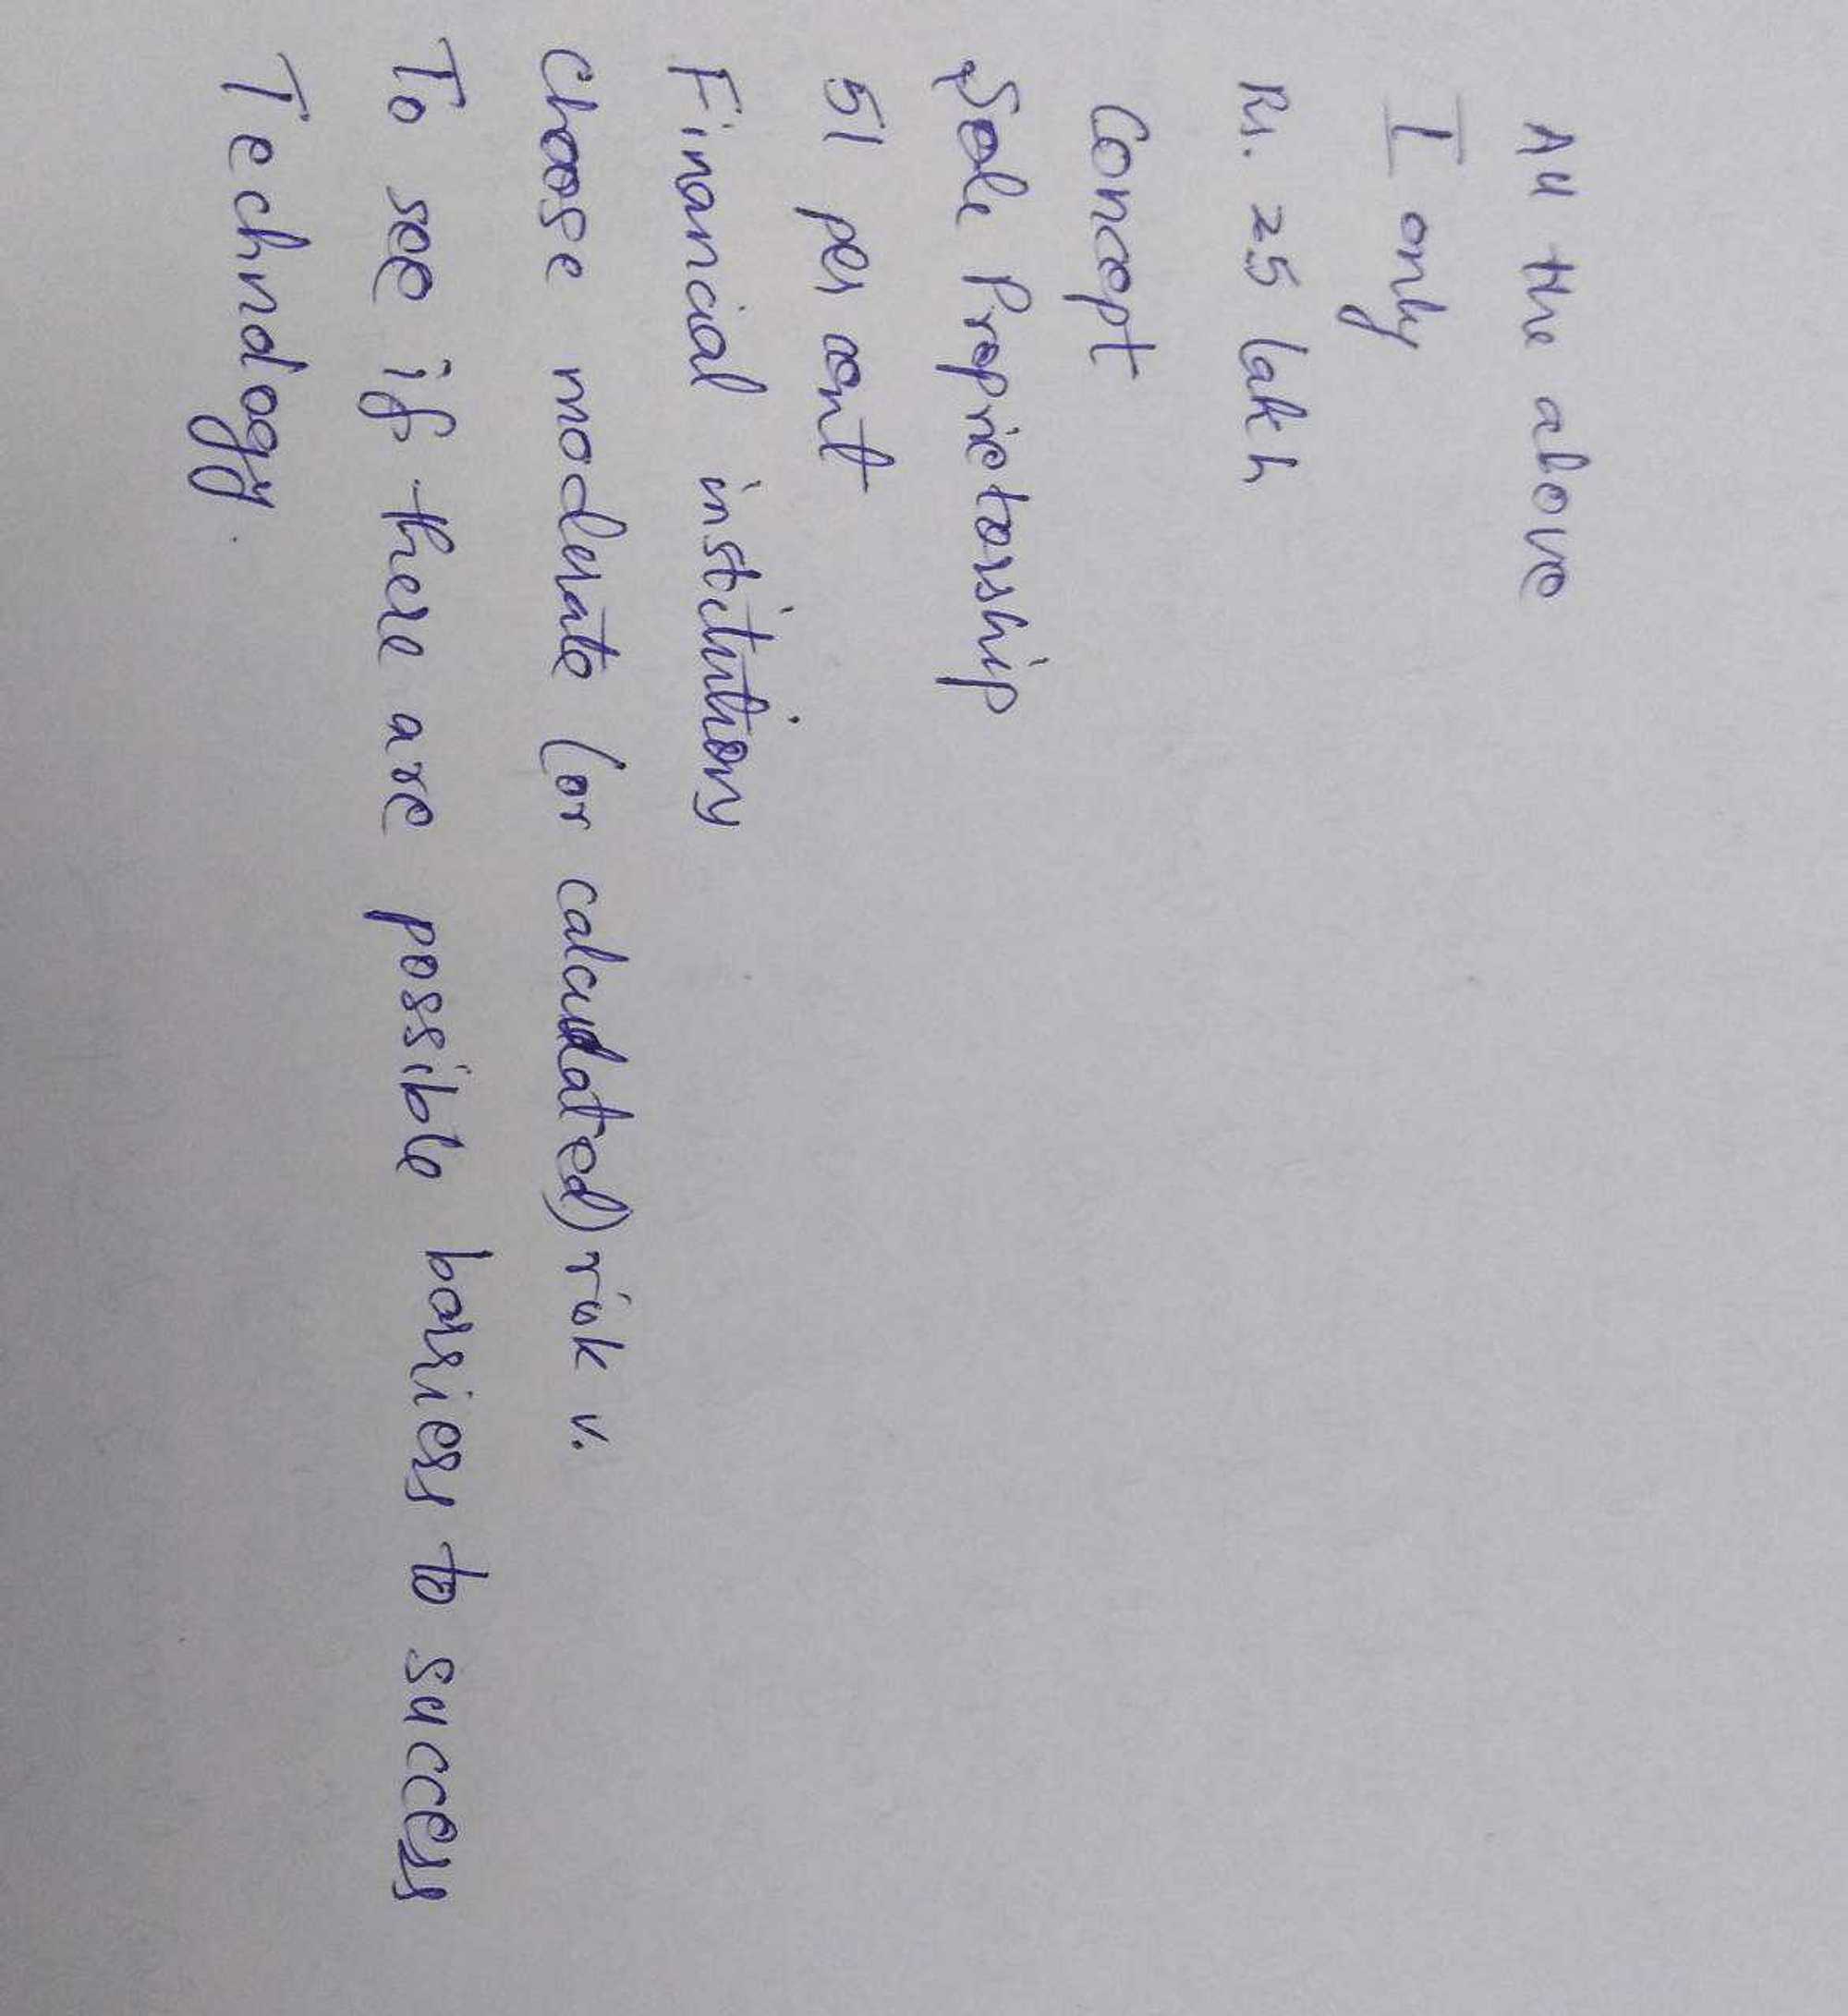 All the above
I only
Rs. 25 lakh
Concept
Sole Proprietorship
51 per cent
Financial institutions
Choose moderate (or calculated) risk v.
To see if there are possible barriers to success
Technology.